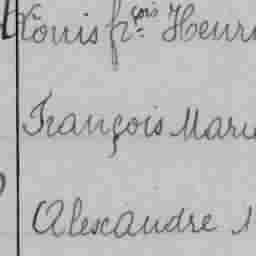 Louis fr.çois Henri
François Marie
Alexandre